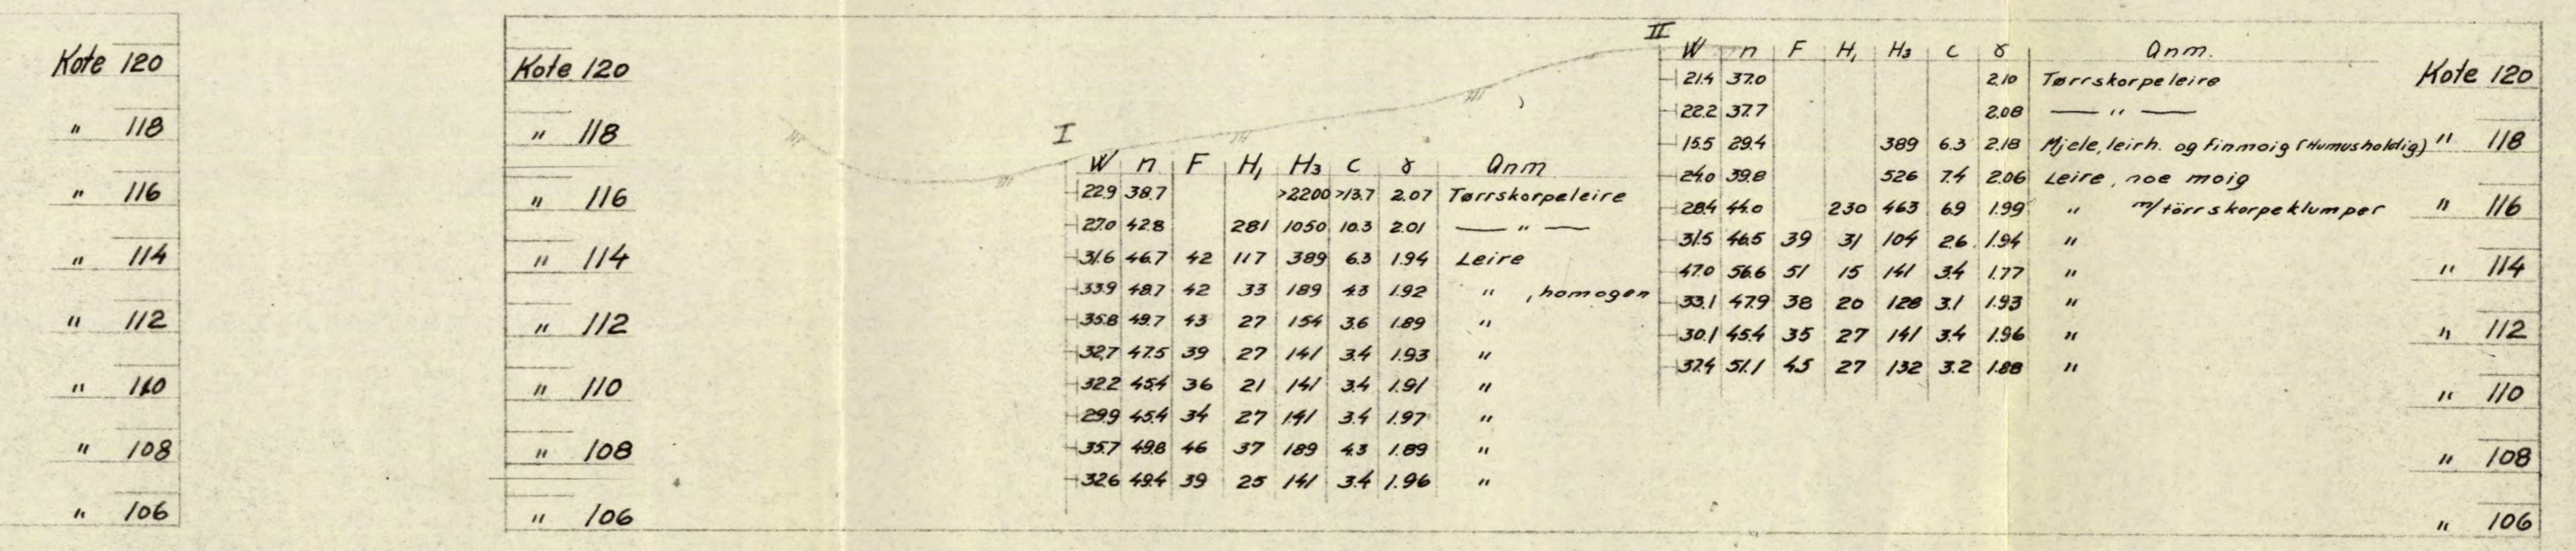 Kote 120
" 118
" 116
" 114
" 112
" 110
" 108
" 106
Kote 120
" 118
" 116
" 114
" 112
" 110
" 108
" 106
I
W n F H1 H3 C γ Anm
22.9 38.7 >2200 >13.7 2.07 Tørrskorpeleire
27.0 42.8 281 1050 10.3 2.01 — " —
31.6 46.7 42 117 389 6.3 1.94 Leire
33.9 48.7 42 33 189 4.3 1.92 " , homogen
35.8 49.7 43 27 154 3.6 1.89 "
32.7 47.5 39 27 141 3.4 1.93 "
32.2 45.4 36 21 141 3.4 1.91 "
29.9 45.4 34 27 141 3.4 1.97 "
35.7 49.8 46 37 189 4.3 1.89 "
32.6 49.4 39 25 141 3.4 1.96 "
II
W n F H1 H3 C γ Anm.
21.4 37.0 2.10 Tørrskorpeleire
22.2 37.7 2.08 — " —
15.5 29.4 389 6.3 2.18 Mjele, leirh. og finmoig (Humusholdig)
24.0 39.8 526 7.4 2.06 Leire, noe moig
28.4 44.0 230 463 6.9 1.99 " m/törrskorpeklumper
31.5 46.5 39 31 104 2.6 1.94 "
47.0 56.6 51 15 141 3.4 1.77 "
33.1 47.9 38 20 128 3.1 1.93 "
30.1 45.4 35 27 141 3.4 1.96 "
37.4 51.1 45 27 132 3.2 1.88 "
Kote 120
" 118
" 116
" 114
" 112
" 110
" 108
" 106